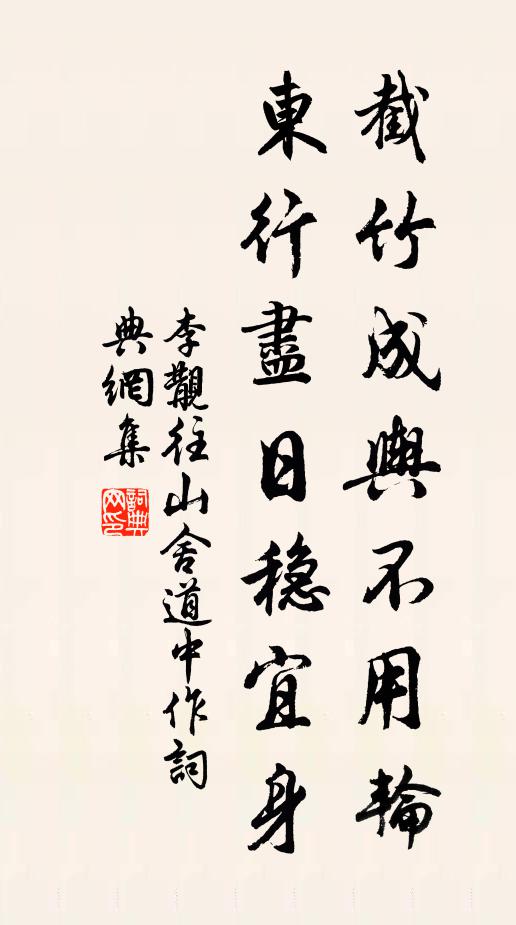 截竹成輿不用輪
東行盡日穩宜身
李覯往山舍道中作詞
典網集
詞典
网印